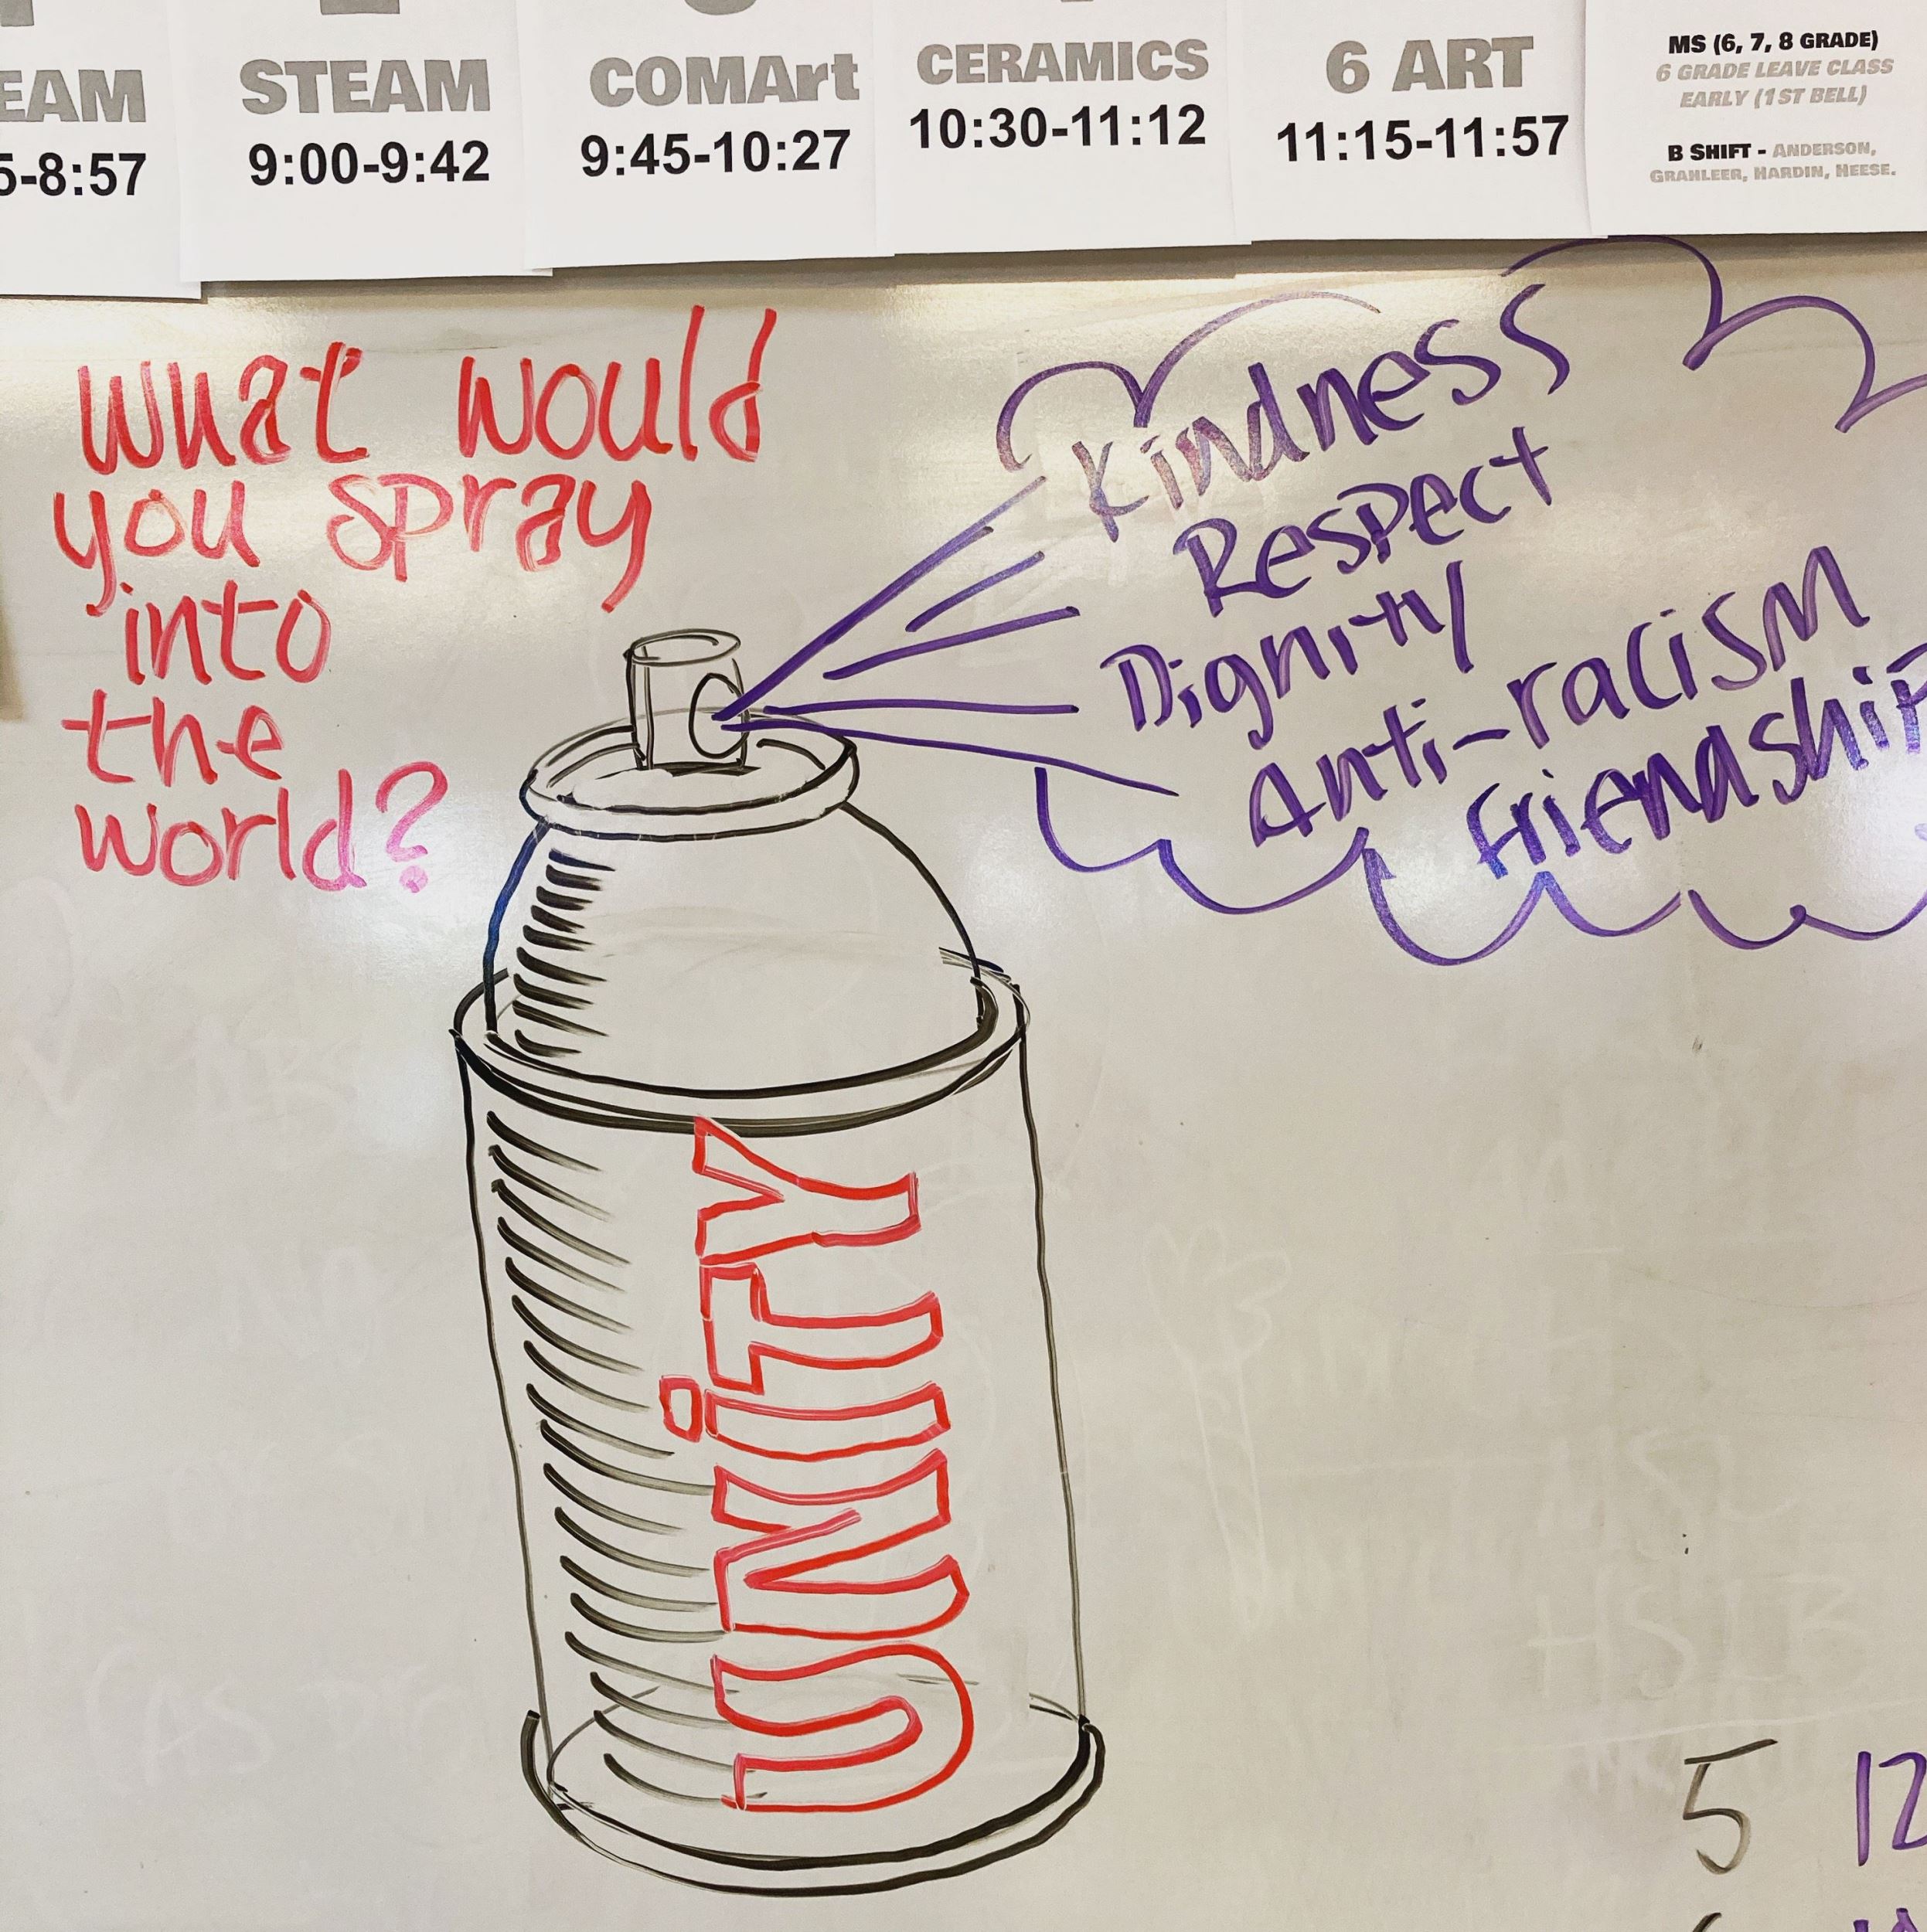 STEAM
9:00-9:42
COMArt
9:45-10:27
CERAMICS
10:30-11:12
6 ART
11:15-11:57
MS (6, 7, 8 GRADE)
6 GRADE LEAVE CLASS
EARLY (1ST BELL)
B SHIFT - ANDERSON,
GRAHLEER, HARDIN, HEESE.
EAM
5-8:57
What would
you spray
into
the
world?
Kindness
Respect
Dignity
Anti-racism
friendship
UNiTY
5 12